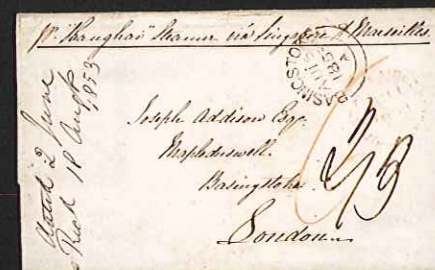 pr. "Shanghai" Steamer viâ Singapore & Marseilles.
BASINGSTOKE
AU 18
1853
A
Joseph Addison Esqr.
Mapledurwell.
Basingstoke.
London
Dated 2 June
Recd 18 Augt
1853